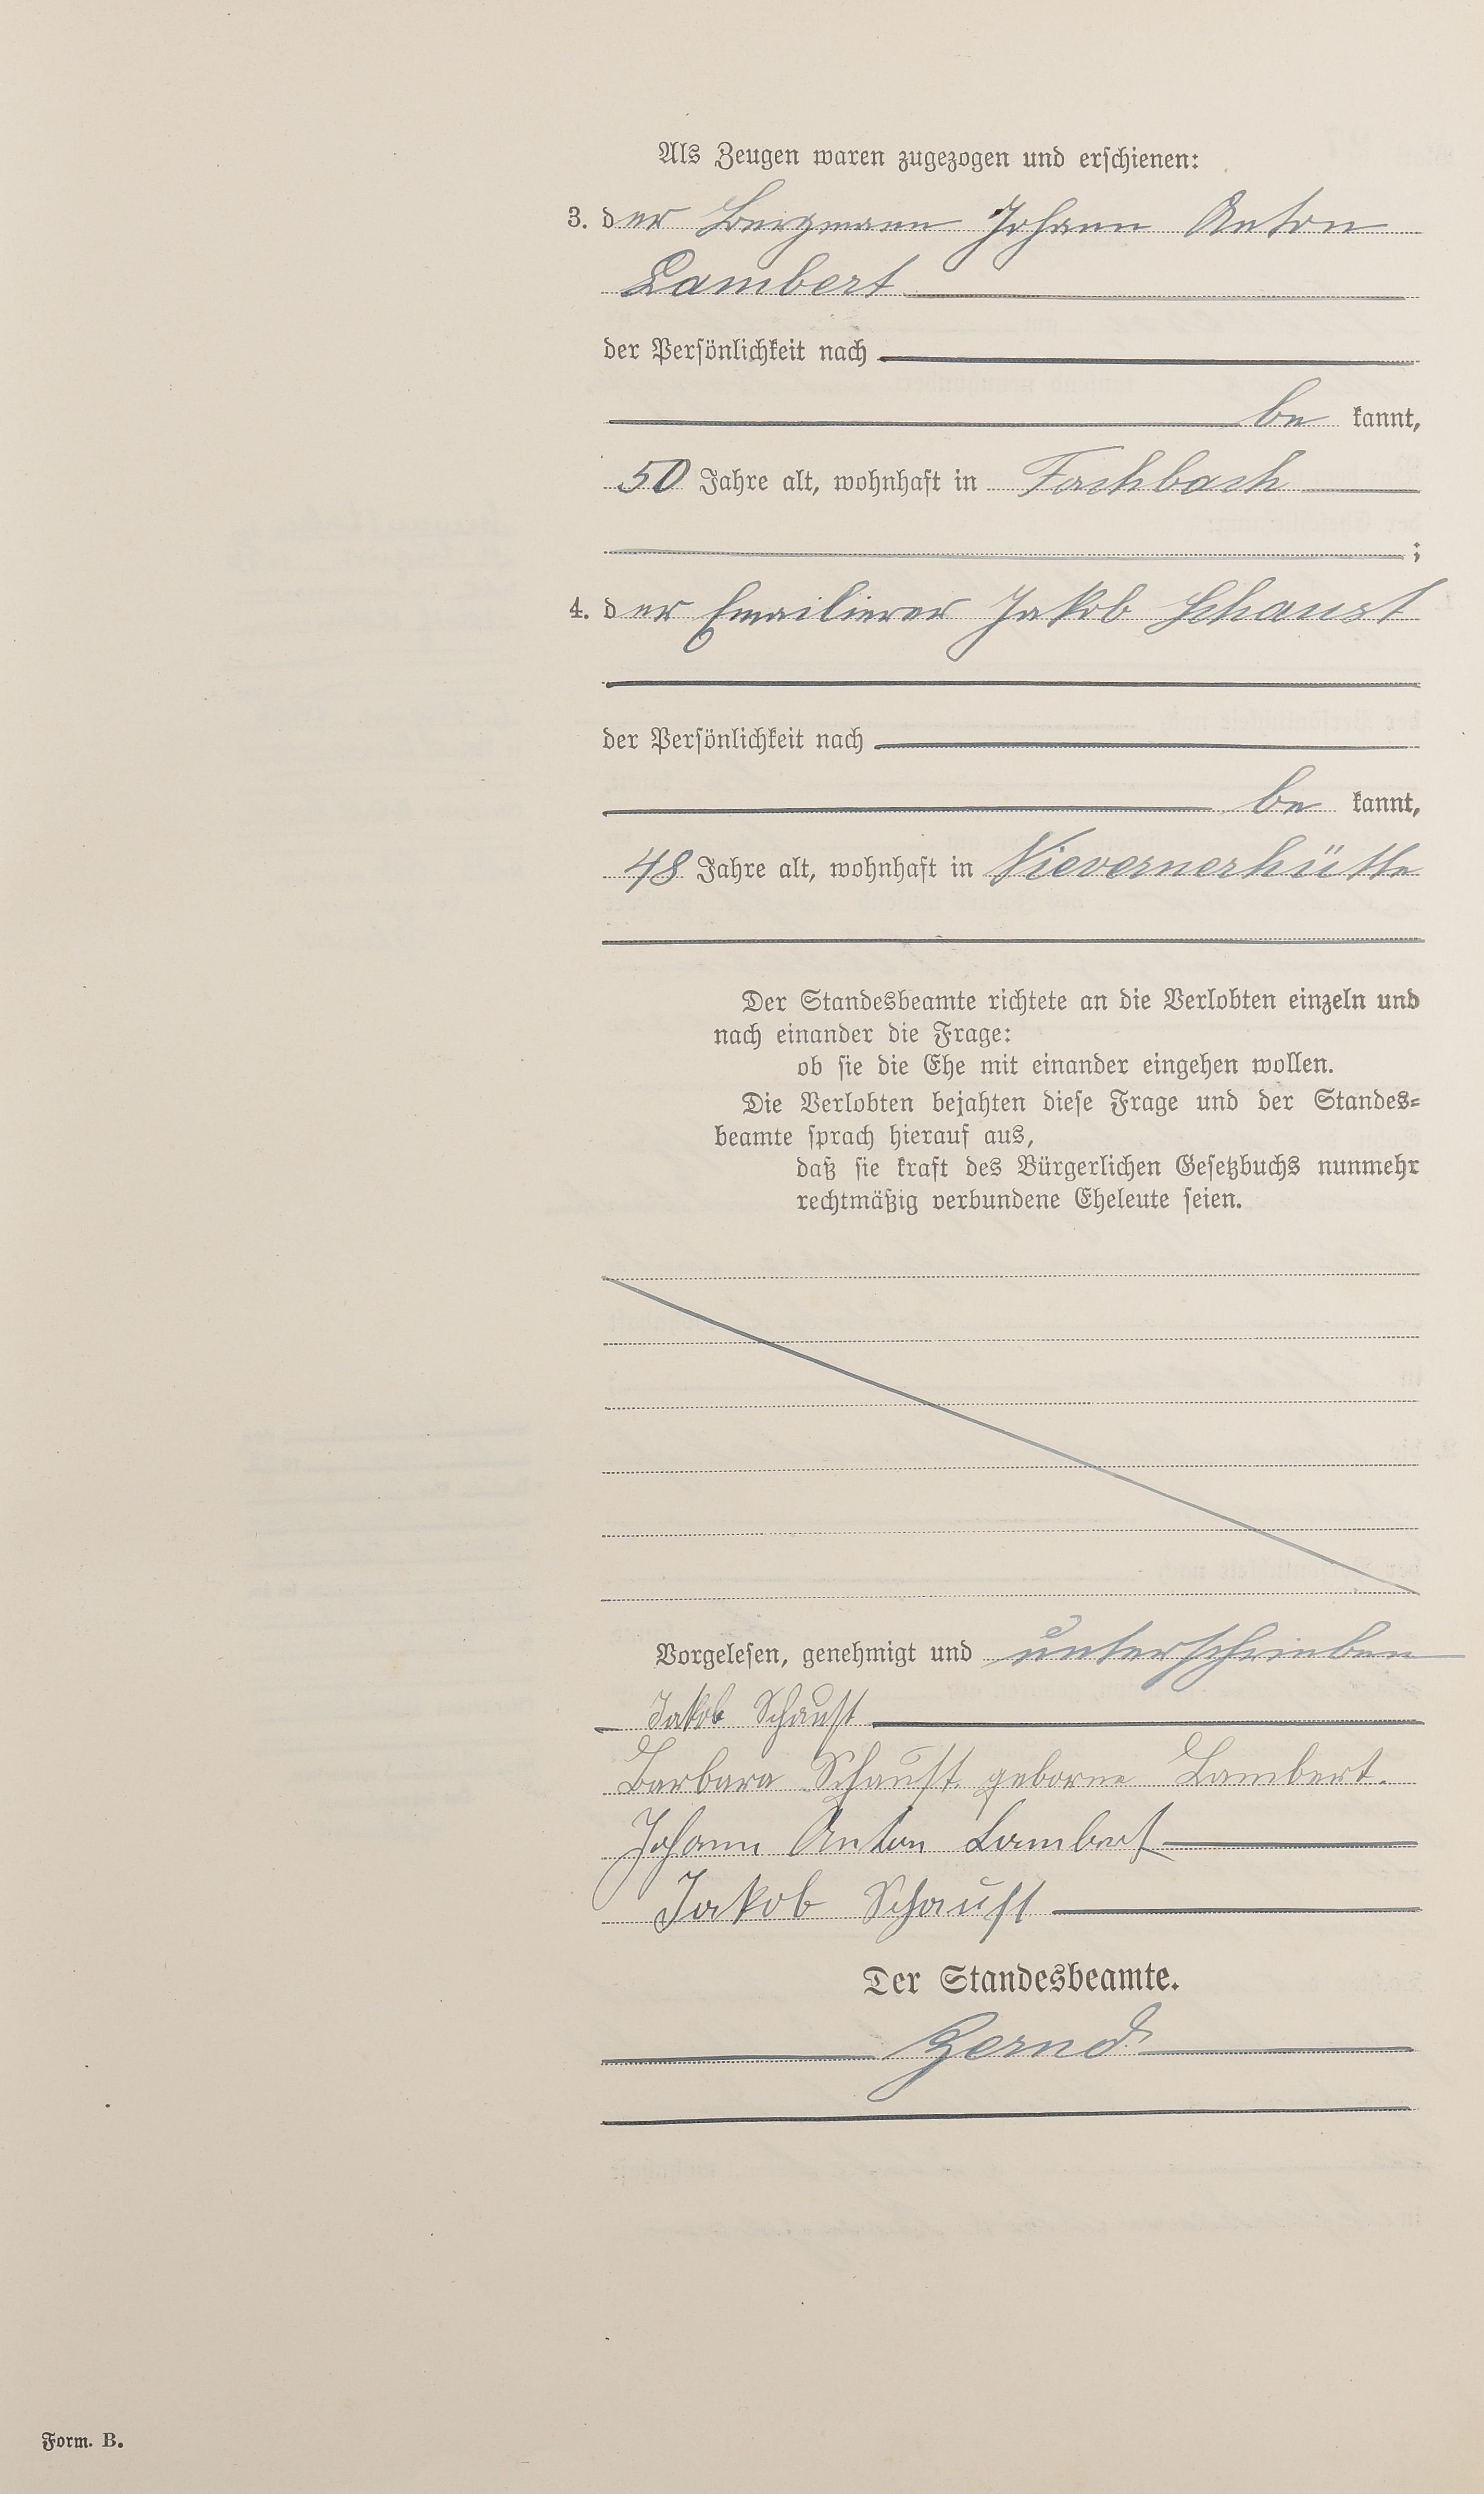 Als Zeugen waren zugezogen und erschienen:
3. der Bergmann Johann Anton
Lambert
der Persönlichkeit nach
be kannt,
50 Jahre alt, wohnhaft in Fachbach
;
4. der Emailierer Jakob Schaust
der Persönlichkeit nach
be kannt,
48 Jahre alt, wohnhaft in Nievernerhütte
Der Standesbeamte richtete an die Verlobten einzeln und
nach einander die Frage:
ob sie die Ehe mit einander eingehen wollen.
Die Verlobten bejahten diese Frage und der Standes=
beamte sprach hierauf aus,
daß sie kraft des Bürgerlichen Gesetzbuchs nunmehr
rechtmäßig verbundene Eheleute seien.
Vorgelesen, genehmigt und unterschrieben
Jakob Schaust
Barbara Schaust geborne Lambert.
Johann Anton Lambert
Jakob Schaust
Der Standesbeamte.
Form. B.